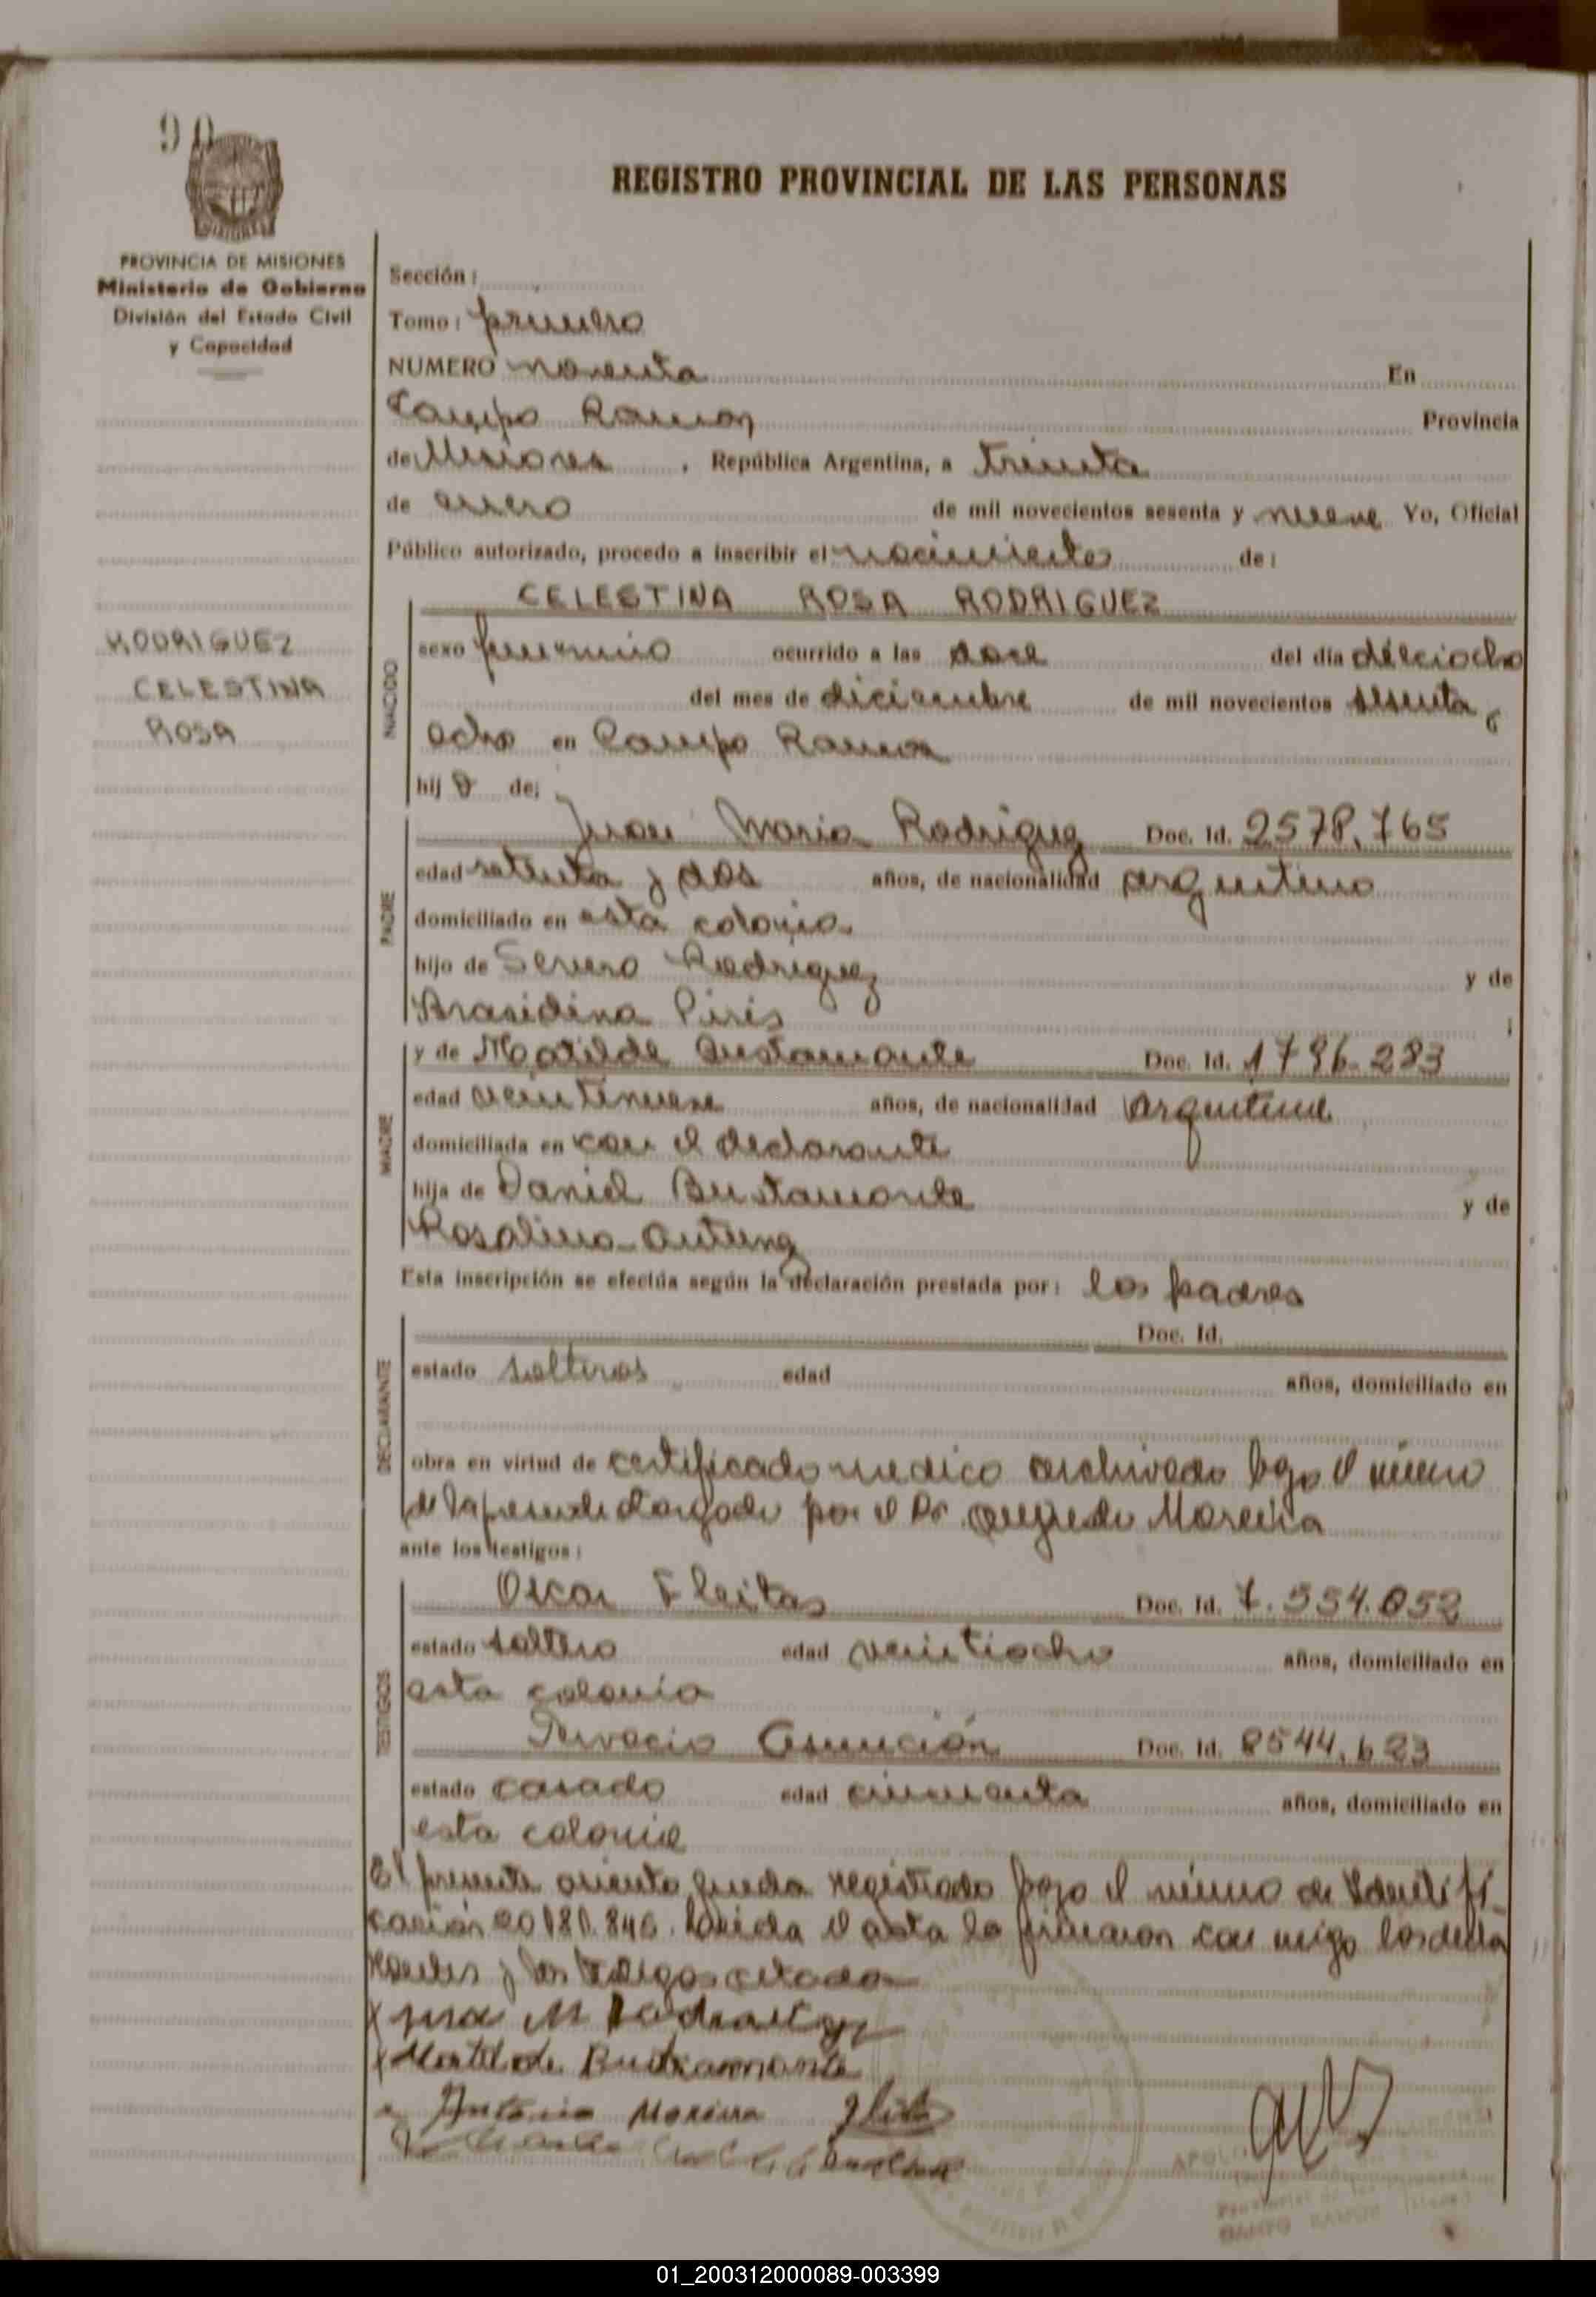 90
REGISTRO PROVINCIAL DE LAS PERSONAS
PROVINCIA DE MISIONES
Ministerio de Gobierno
División del Estado Civil
y Capacidad
RODRIGUEZ
CELESTINA
ROSA
Sección:
Tomo: primero
NUMERO noventa En
Campo Ramon Provincia
de Misiones, República Argentina, a treinta
de enero de mil novecientos sesenta y nueve Yo, Oficial
Público autorizado, procedo a inscribir el nacimiento de:
CELESTINA ROSA RODRIGUEZ
NACIDO
sexo femenino ocurrido a las doce del día dieciocho
del mes de diciembre de mil novecientos sesenta y
ocho en Campo Ramon
hij a de:
PADRE
Juan Maria Rodriguez Doc. Id. 2578.765
edad setenta y dos años, de nacionalidad argentino
domiciliado en esta colonia
hijo de Severo Rodriguez y de
Brasidina Piris
MADRE
y de Matilde Bustamante Doc. Id. 1796.283
edad veintinueve años, de nacionalidad argentina
domiciliada en con el declarante
hija de Daniel Bustamante y de
Rosalina
Esta inscripción se efectúa según la declaración prestada por: los padres
DECLARANTE
Doc. Id.
estado solteros edad años, domiciliado en
obra en virtud de certificado medico archivado bajo el número
de la por el Dr. Moreira
ante los testigos:
TESTIGOS
Oscar Fleitas Doc. Id. 7.554.052
estado soltero edad veintiocho años, domiciliado en
esta colonia
Asunción Doc. Id. 8544.623
estado casado edad cincuenta años, domiciliado en
esta colonia
El presente asiento queda registrado bajo el número de Identifi-
cación 20.181.846. Leida el acta la firmaron con migo los decla
rantes y los testigos citados
Matilde Bustamante
Antonio Moreira
CAMPO RAMON
01_200312000089-003399